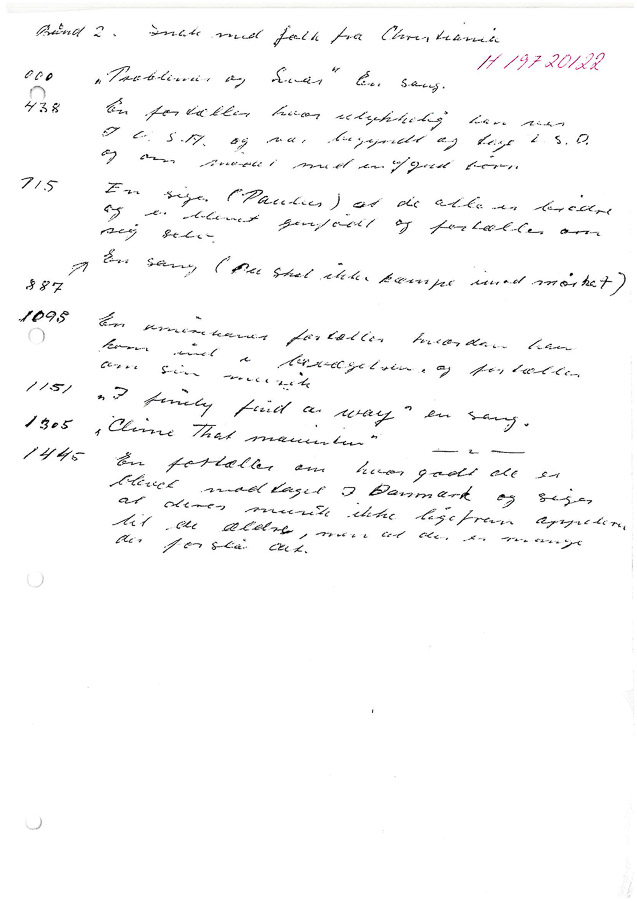 Bånd 2. Snak med folk fra Christiania
H 19720122
000 "Problemer og Svar" En sang.
438 En fortæller hvor ulykkelig han var
I U.S.A. og var begyndt og tage L.S.D.
og om mødet med en/gud børn
715 En siger (Paulus) at de alle er brødre
og er blevet genfødt og fortæller om
sig selv.
887 En sang (Du skal ikke kæmpe imod mørket)
1095 En amerikaner fortæller hvordan han
kom ind i bevægelsen, og fortæller
om sin musik
1151 "I finely find a way" en sang.
1305 "Clime That mauintin" — " —
1445 En fortæller om hvor godt de er
blevet modtaget I Danmark og siger
at deres musik ikke ligefrem appelere
til de ældre, men at der er mange
der forstår det.